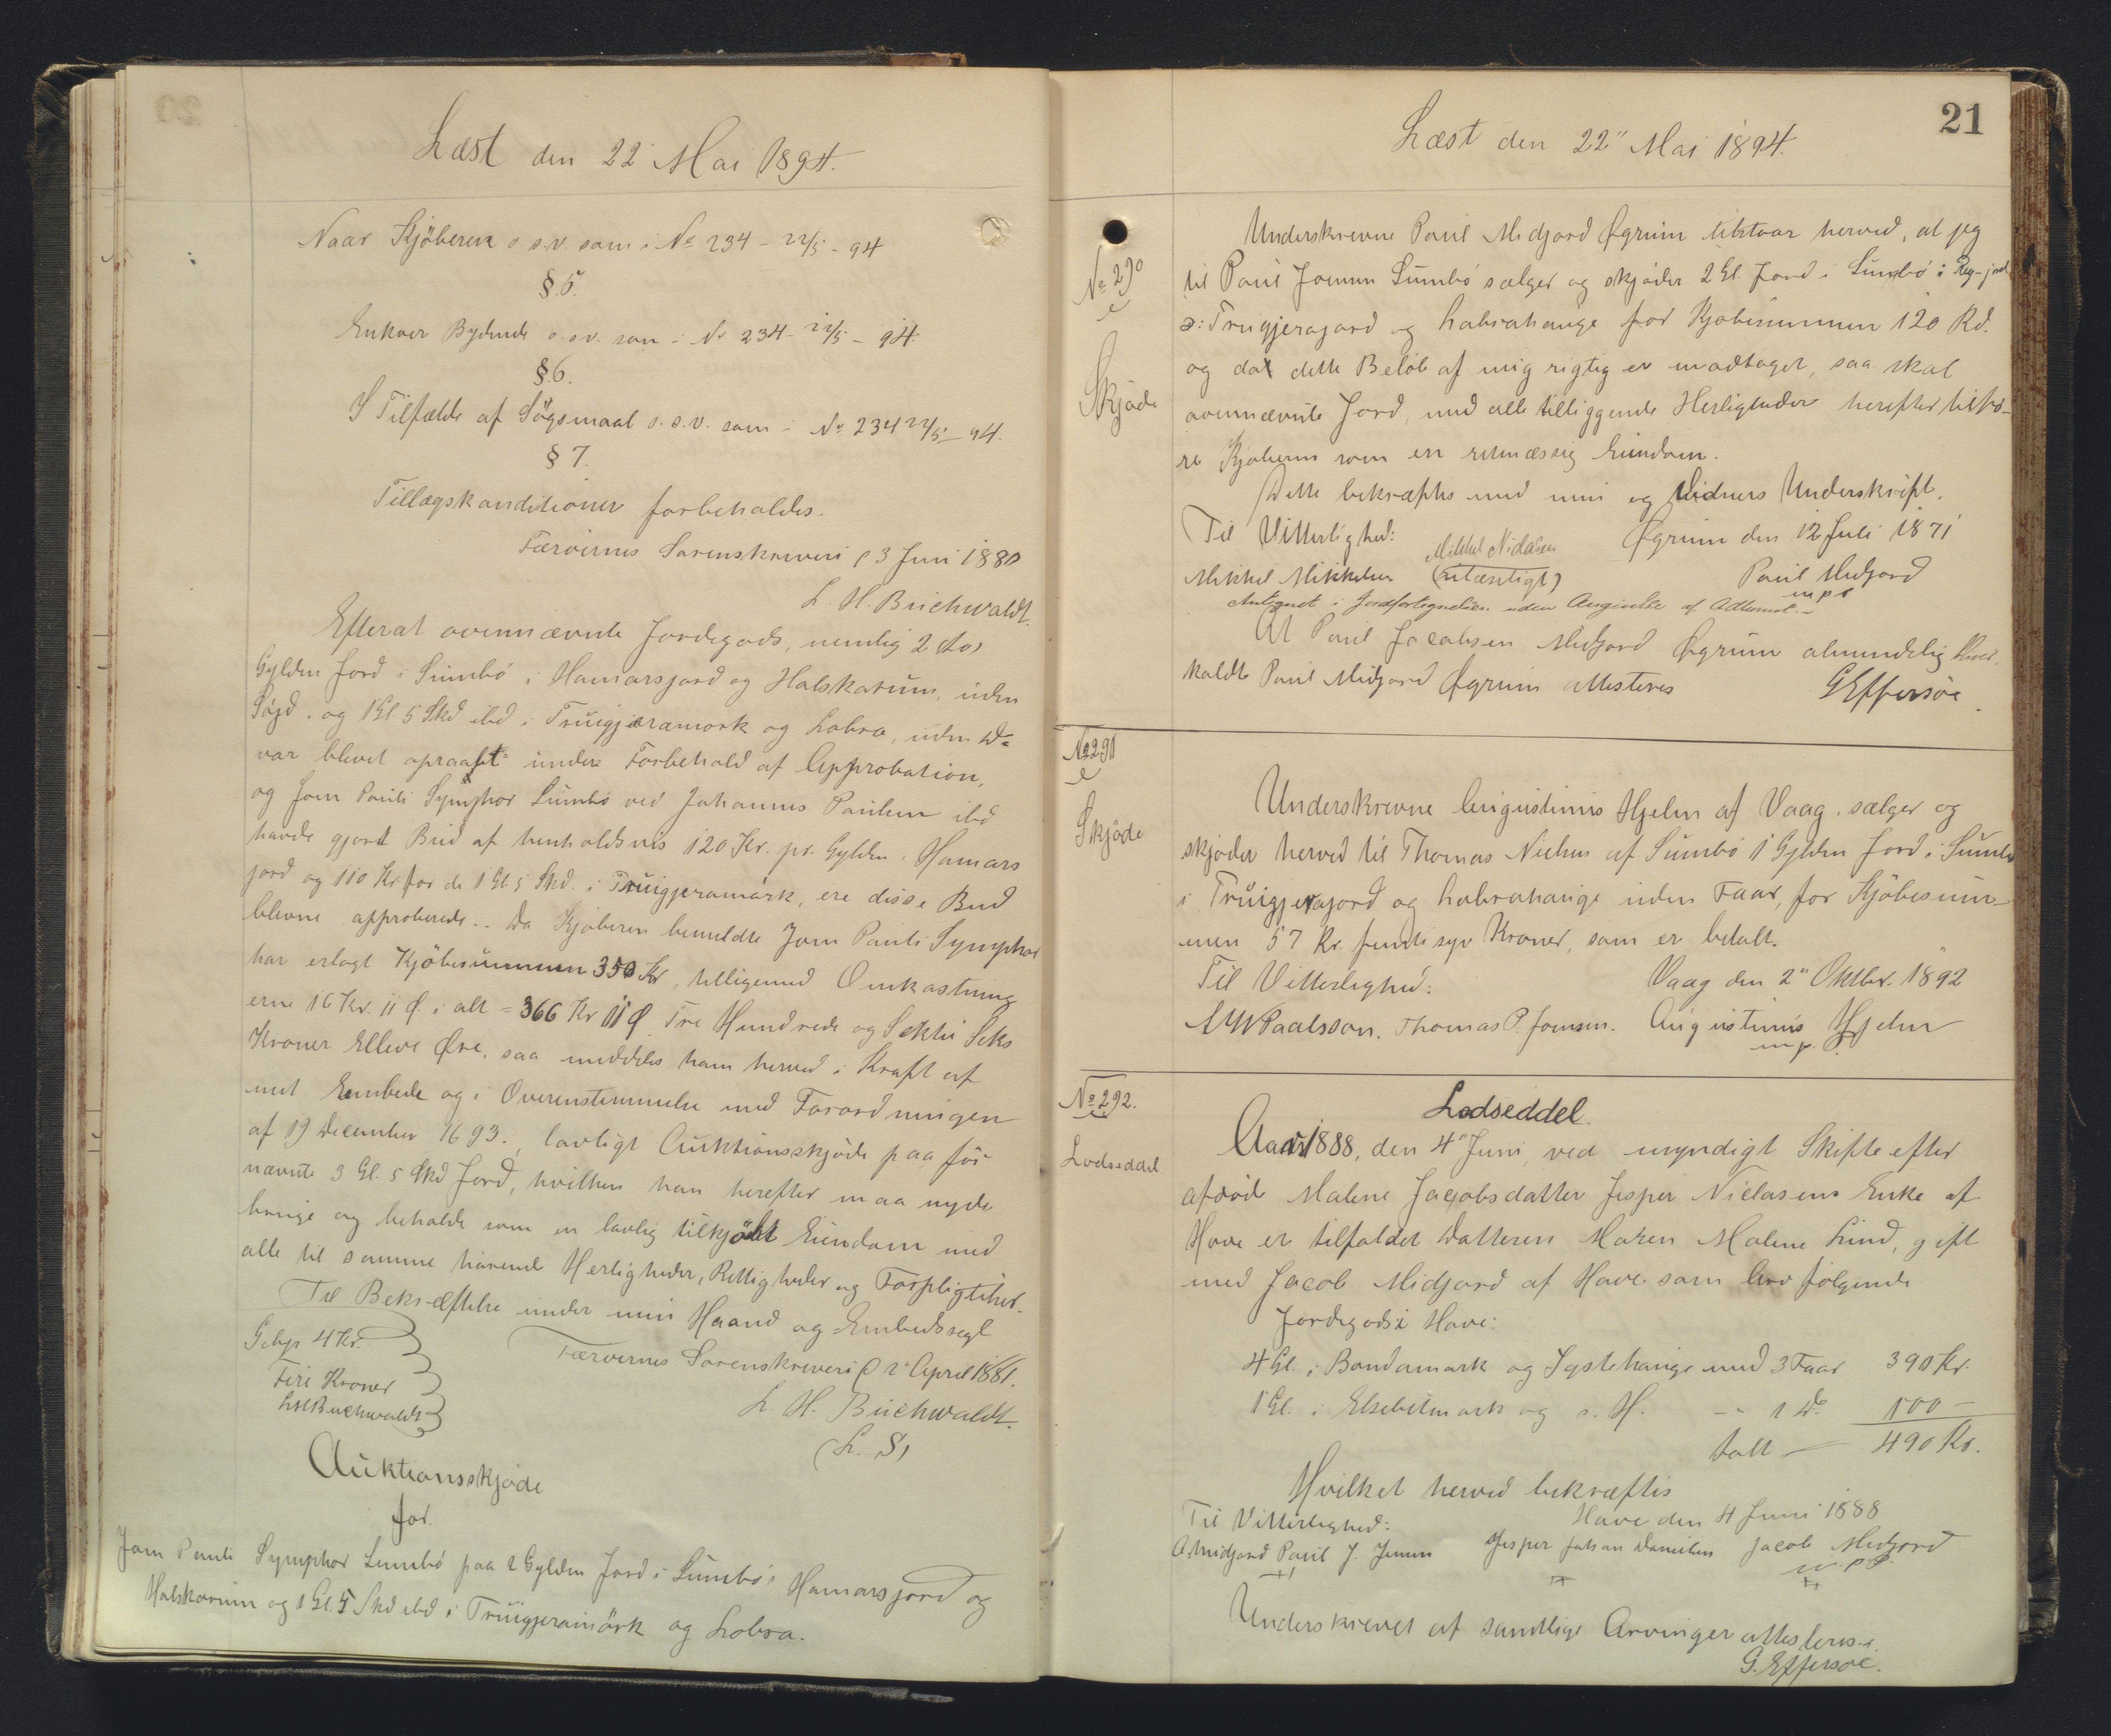 Læst den 22 Mai 1894.
Naar Kjöberen o.s.v. som i No 234 - 22/5 - 94
§.5.
Enhver Bydende o.s.v. som i No 234 - 22/5 - 94.
§.6.
I Tilfælde af Sögsmaal o.s.v. som i No 234 22/5 - 94.
§ 7.
Tillægskonditioner forbeholdes.
Færöernes Sorenskriveri 3 Juni 1880
L. H. Buchwaldt.
Efterat ovennævnte Jordegods, nemlig 2 (to)
Gylden Jord i Sumbö i Hamarsjord og Halskorum, uden
og 1 Gl 5 Skd ibd i Truigjeramörk og Lobra, uden Do
var blevet opraabt under Forbehold af Approbation,
og Joen Pauli Symphor Sumbö ved Johannes Paulsen ibd
havde gjort Bud af henholdsvis 120 Kr. pr. Gylden i Hamars
jord og 110 Kr for de 1 Gl 5 Skd. i Truigjeramörk, ere disse Bud
blevne approberede.. Da Kjöberen bemeldte Joen Pauli Symphor
har erlagt Kjöbesummen 350 Kr, tilligemed Omkostning
erne 16 Kr. 11 Ø. i alt = 366 Kr 11 Ø. Tre Hundrede og Sexti Seks
Kroner Elleve Øre, saa meddeles ham herved i Kraft af
mit Embede og i Overensstemmelse med Forordningen
af 19 December 1693., lovligt Auktionsskjöde paa för-
nævnte 3 Gl. 5 Skd Jord, hvilken han herefter maa nyde
bruge og beholde som en lovlig tilkjöbt Eiendom med
alle til samme hörende Herligheder, Rettigheder og Forpligtelser.
Til Bekræftelse under min Haand og Embedssegl
Gebyr 4 Kr.
Fire Kroner
LHBuchwaldt
Færöernes Sorenskriveri 2 April 1881.
L. H. Buchwaldt.
(L. S)
Auktionsskjöde
for.
Joen Pauli Symphor Sumbö paa 2 Gylden Jord i Sumbö i Hamarsjord og
Halskorum og 1 Gl. 5 Skd ibd i Truigjeramörk og Lobra.
21
Læst den 22" Mai 1894.
No 290
Skjöde
Underskrevne Poul Midjord Øgrum tilstaar herved, at jeg
til Poul Joensen Sumbö sælger og skjöder 2 Gl. Jord i Sumbö i
Truigjerajord og Lobrahauge for Kjöbesummen 120 Rd.
og da dette Belöb af mig rigtig er modtaget, saa skal
ovennævnte Jord, med alle tilliggende Herligheder herefter tilhö-
re Kjöberen som en retmæssig Eiendom.
Dette bekræftes med min og Vidners Underskrift.
Til Vitterlighed: Øgrum den 12 Juli 1871
Mikkel Mikkelsen Mikkel Nidalsen Poul Midjord
m.p.
Antegnet i Jordfortegnelsen uden Angivelse af Adkomst.-
At Poul Jacobsen Midjord Øgrum almindelig
kaldt Poul Midjord Øgrum attesteres
GEffersöe.
No 291
Skjöde
Underskrevne Augustinus Hjelm af Vaag, sælger og
skjöder herved til Thomas Nielsen af Sumbö 1 Gylden Jord i Sumbö
i Truigjerajord og Lobrahauge uden Faar, for Kjöbesum-
men 57 Kr. femti syv Kroner, som er betalt.
Til Vitterlighed: Vaag den 2" Oktbr. 1892
Paalsson. Thomas P. Joensen. Augustinus Hjelm
m.p.
No 292.
Lodseddel.
Lodseddel.
Aar 1888, den 4" Juni, ved myndigt Skifte efter
afdöde Malene Jacobsdatter Jesper Niclasens Enke af
Hove er tilfaldet Datteren Maren Malene Lund, gift
med Jacob Midjord af Hove som Arv fölgende
Jordegods i Hove:
4 Gl. i Bondamark og Systehauge med 3 Faar 390 Kr.
1 Gl. i Elsebetmark og s. H. -- 1 Do 100 -
talt — 490 Kr.
Hvilket herved bekræftes
Til Vitterlighed: Hove den 4 Juni 1888
A. Midjord Poul J. Jensen Jesper Johan Danielsen Jacob Midjord
m.p.
Underskrevet af samtlige Arvinger attesteres.
G. Effersöe.